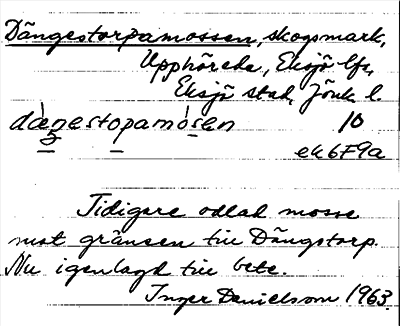 Dängestorpamossen, skogsmark,
Upphörda, Eksjö lfs,
Eksjö stad, Jönk. l.
dàŋestopamósen 10
ek 6F9a
Tidigare odlad mosse
mot gränsen till Dängstorp.
Nu igenlagd till bete.
Inger Danielsson 1963.